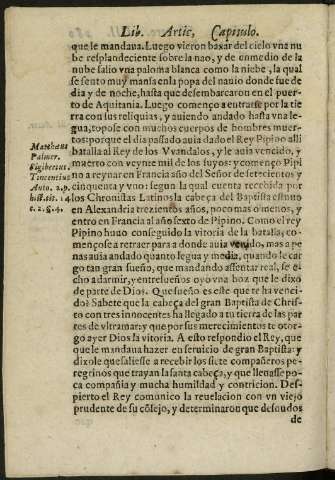 Lib. Artic, Capitulo.
que le mandaua. Luego vieron baxar del cielo vna nu
be resplandeciente sobre la nao, y de enmedio de la
nube salio vna paloma blanca como la niebe, la qual
se sento muy mansa en la popa del nauio donde fue de
dia y de noche, hasta que desembarcaron en el puerto
de Aquitania. Luego començo a entrarse por la tie
rra con sus reliquias, y auiendo andado hasta vna le
gua, topose con muchos cuerpos de hombres muer-
tos: porque el dia passado auia dado el Rey Pipino alli
batalla al Rey de los Vvandalos, y le auia vencido, y
muerto con veynte mil de los suyos: y començo Pipi
no a reynar en Francia año del Señor de setecientos y
cinquenta y vno: segun la qual cuenta recebida por
los Chronistas Latinos la cabeça del Baptista estuuo
en Alexandria trezientos años, poco mas o menos, y
entro en Francia al año sexto de Pipino. Como el rey
Pipino huuo conseguido la vitoria de la batalla, co-
mençose a retraer para a donde auia venido, mas a pe
nas auia andado quanto legua y media, quando le car
go tan gran sueño, que mandando assentar real, se e-
cho a dormir, y entresueños oyo vna boz que le dixo
de parte de Dios. Que sueño es este que te ha venci-
do? Sabete que la cabeça del gran Baptista de Chris-
to con tres innocentes ha llegado a tu tierra de las par
tes de vltramar: y que por sus merecimientos te otor-
go ayer Dios la vitoria. A esto respondio el Rey, que
que le mandaua hazer en seruicio de gran Baptista: y
dixole que saliesse a recebir los siete compañeros pe-
regrinos que trayan la santa cabeça, y que lleuasse po-
ca compañia y mucha humildad y contricion. Des-
pierto el Rey comunico la reuelacion con vn viejo
prudente de su cõsejo, y determinaron que desnudos
de
Matthæus
Palmer.
Sigibertus.
Vincentius
Anto. 2. p.
hist. tit. 14.
c. 2. §. 4.